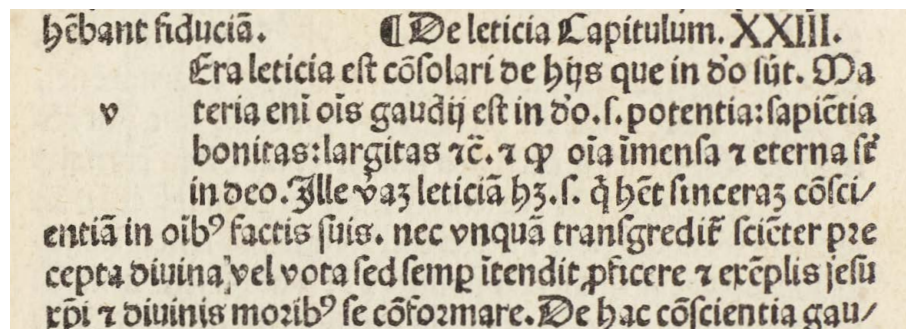 hēbant fiduciā. ¶ De leticia Capitulum. XXIII.
Era leticia est cōsolari de hijs que in d'o sūt. Ma
v teria eni oīs gaudij est in d'o. s. potentia: sapiētia
bonitas: largitas ⁊c̄. ⁊ ꝙ oīa īmensa ⁊ eterna st̄
in deo. Ille v̄aȝ leticiā hȝ. s. q̄ hēt sinceraȝ cōsci/
entiā in oībꝰ factis suis. nec vnquā transgredit̄ sciēter pre
cepta diuina, vel vota sed semꝑ ītendit ꝓficere ⁊ exēplis jesu
xp̄i ⁊ diuinis moribꝰ se cōformare. De hac cōscientia gau/